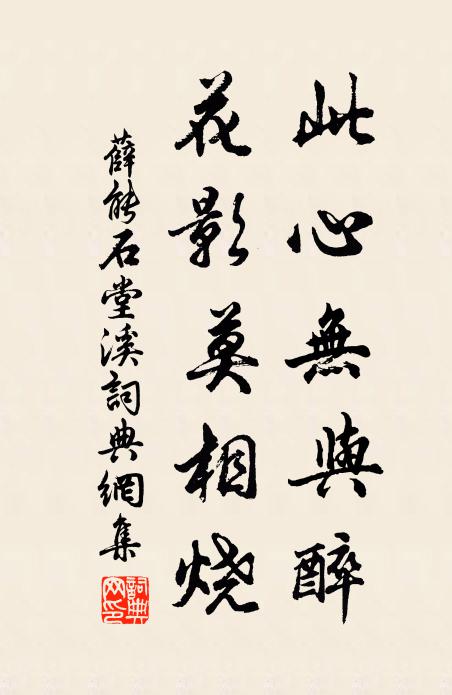 此心無與醉
花影莫相烧
薛能石堂溪詞典網集
詞典
网印